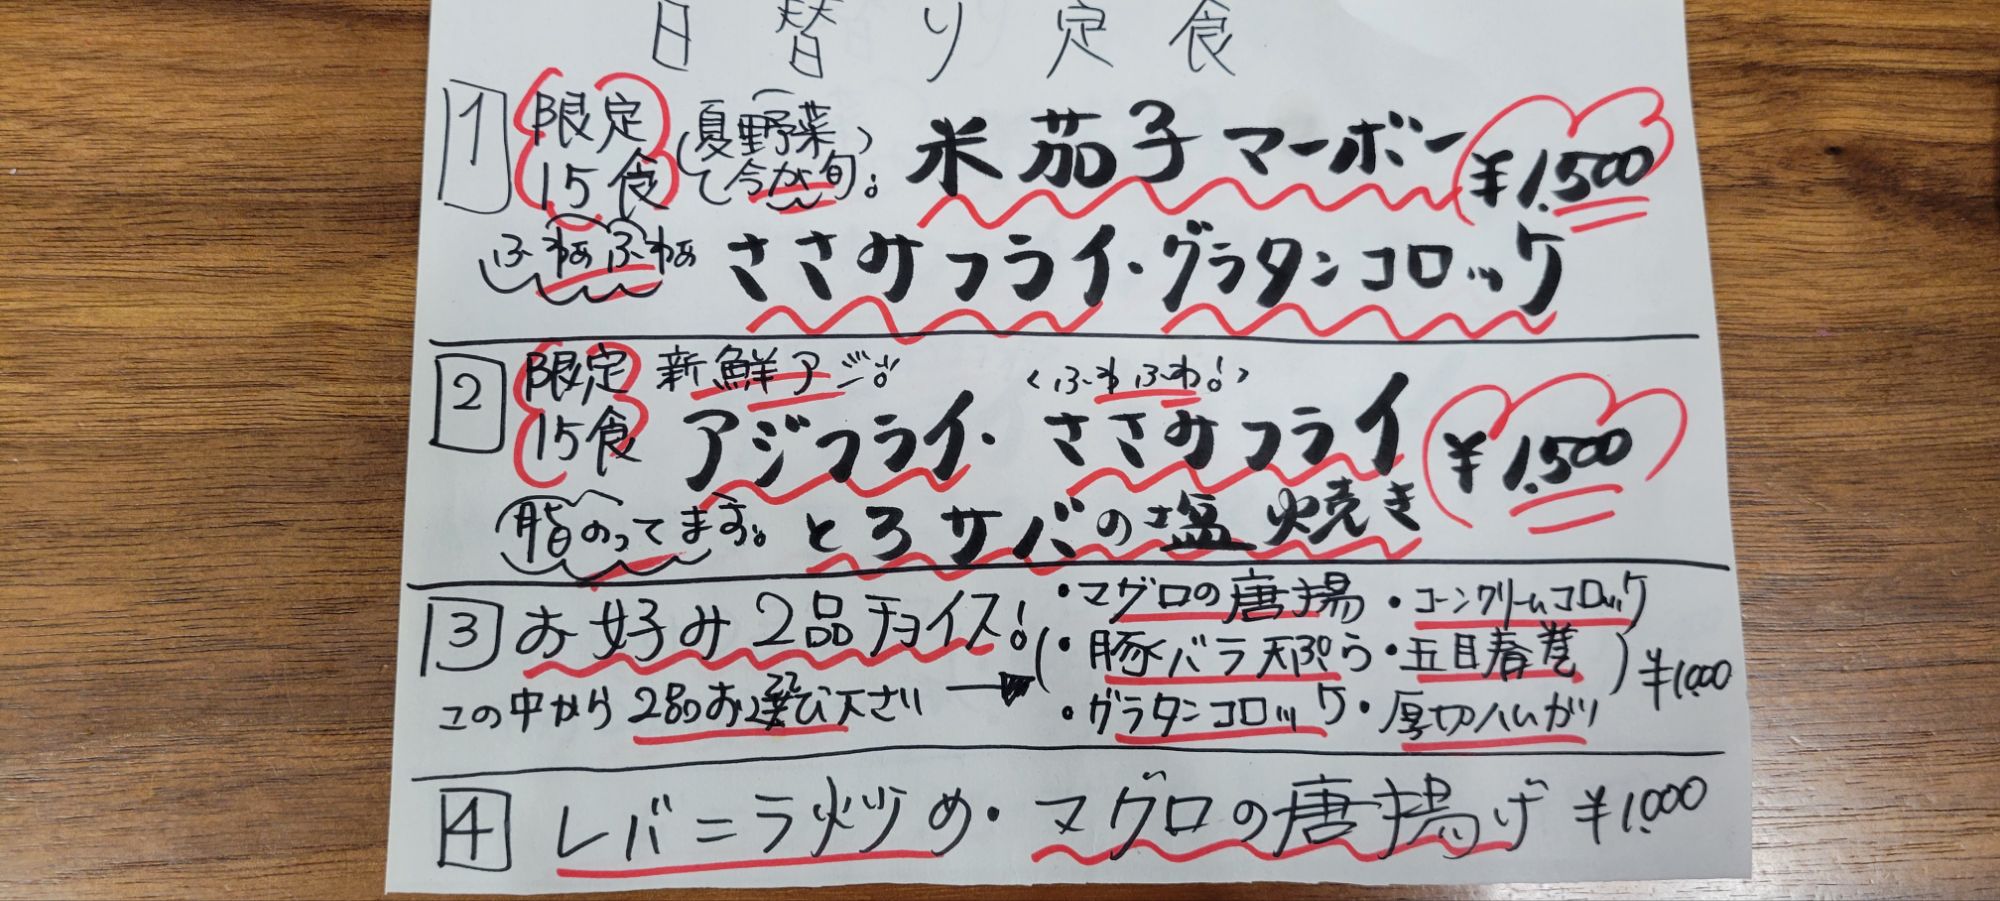 日替り定食
1 限定15食 (夏野菜て今が旬!) 米茄子マーボー ¥1,500
ふわぁふわぁ ささみフライ・グラタンコロッケ
2 限定15食 新鮮アジ! アジフライ・ <ふわふわ!> ささみフライ ¥1,500
脂のってます! とろサバの塩焼き
3 お好み2品チョイス!
この中から2品お選び下さい →
(・マグロの唐揚 ・コーンクリームコロッケ
・豚バラ天ぷら ・五目春巻
・グラタンコロッケ ・厚切ハムカツ) ¥1,000
4 レバニラ炒め・マグロの唐揚げ ¥1,000